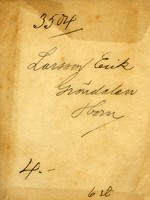 3504
Larson Erik
Gröndalen
Horn
4.-
6 st